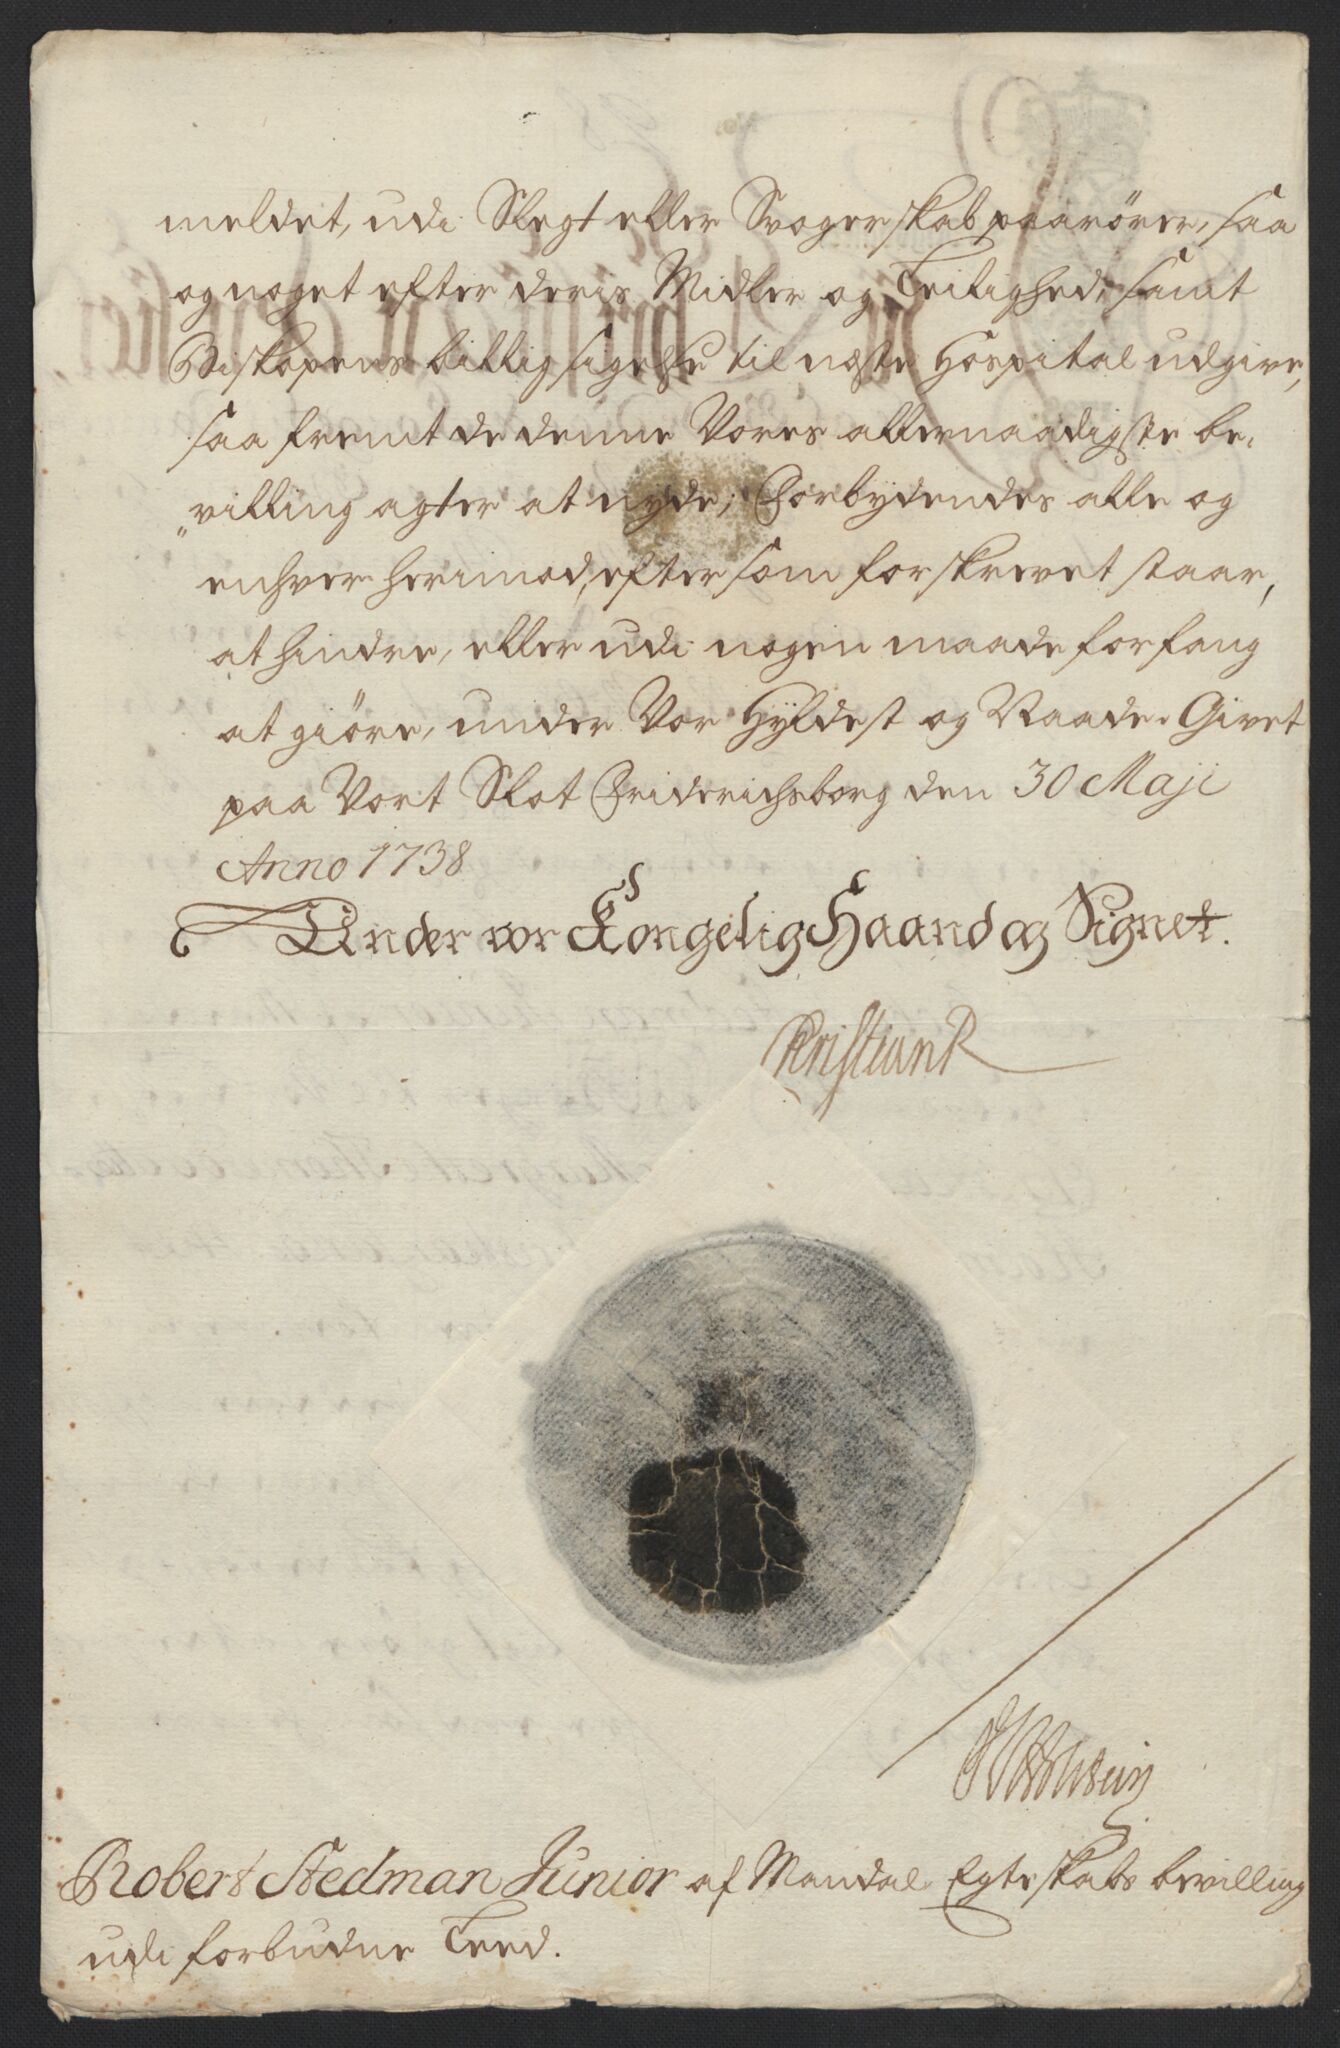 meldet, udi Slegt eller Svogerskab paarörer, saa
og noget efter deris Midler og Leilighed, samt
Biskopens billig sigelse til næste Hospital udgive,
saa fremt de denne Vores allernaadigste be,
"villing agter at nyde; Forbydendes alle og
enhver herimod, eftersom forskrevet staar,
at hindre, eller udi nogen maade forfang
at giöre, under Vor Hyldest og Naade. Givet
paa Vort Slot Friderichsborg den 30 Maji
Anno 1738
Under vor Kongelig Haand og Signet.
Christian R
Robert Stedman Junior af Mandal Egteskabs bevilling
udi forbudne Leed.